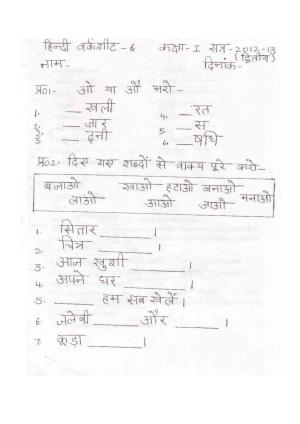 हिन्दी वर्कशीट-6 कक्षा-I सत्र-2012-13
नाम- दिनांक- (द्वितीय)
प्र01- ओ या औ भरो-
1. __ खली 4. __ रत
2. __ ज़ार 5. __ स
3 __ ढ़नी 6. __ षधि
प्र02- दिए गए शब्दों से वाक्य पूरे करो-
बजाओ खाओ हटाओ बनाओ मनाओ
लाओ आओ जाओ
1. सितार ______।
2. चित्र ______।
3. आज खुशी ______।
4. अपने घर ______।
5. ______ हम सब खेलें।
6. जलेबी ______ और ______।
7. कूड़ा ______।